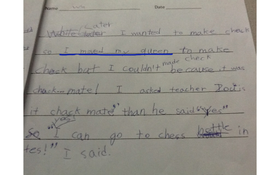 Name Date
later I wanted to make check
so I moved my queen to make
check but I couldn't make check because it was
check mate! I asked teacher is
it check mate" than he said "yes"
So I can go to chess battle in
tes!" I said.